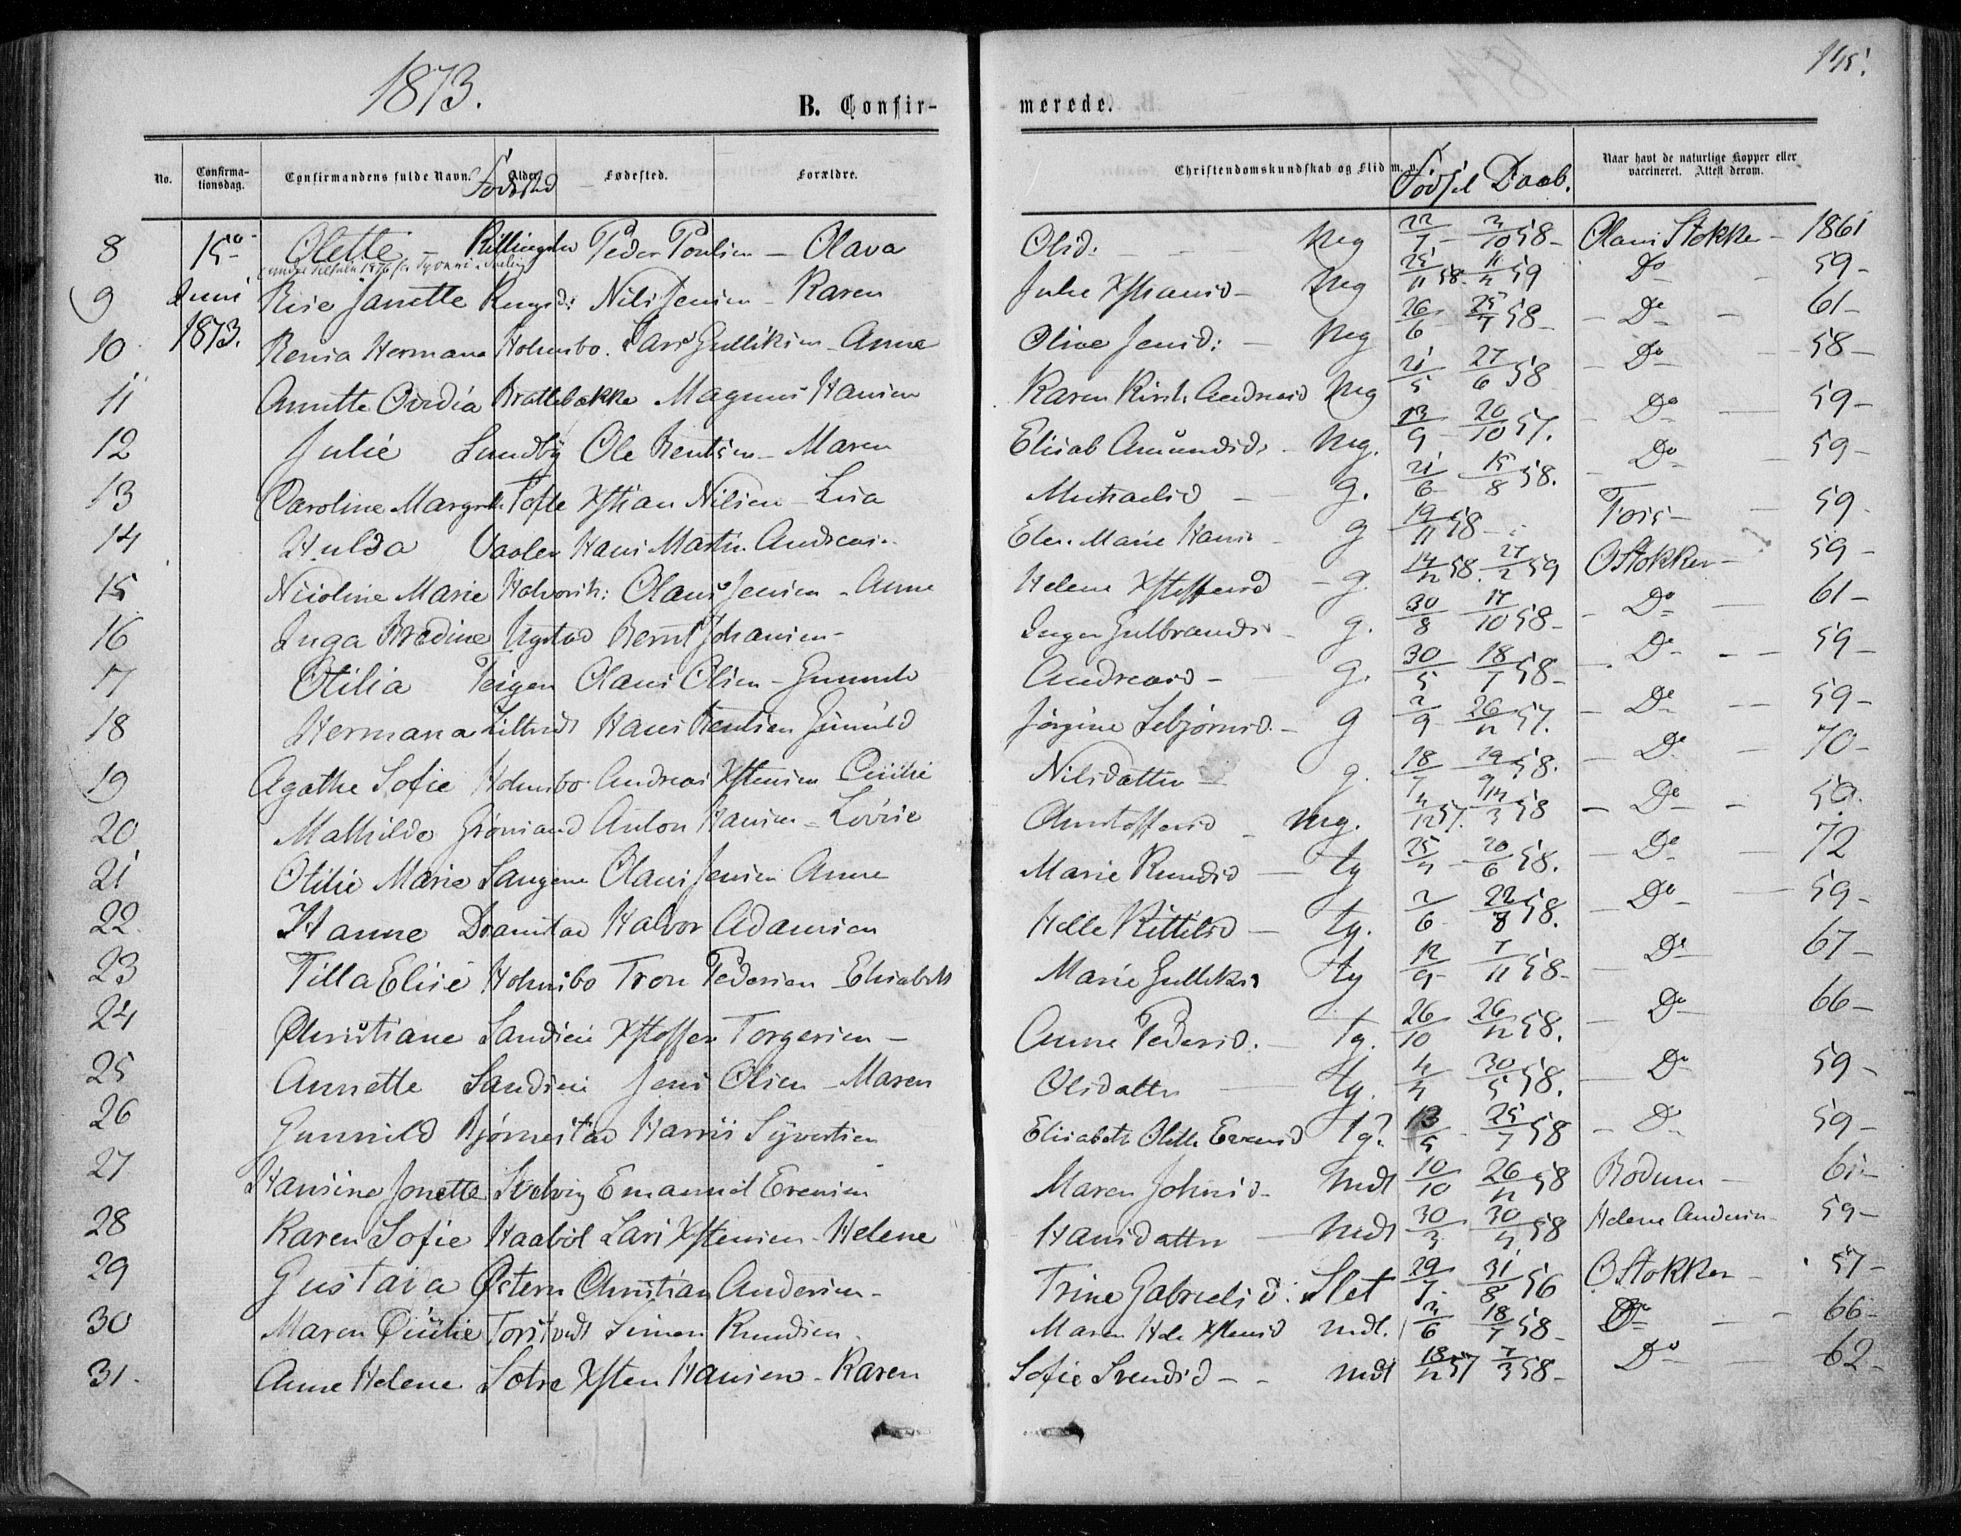 1873.
145.
B. Confir-
merede.
No.
Confirma-
tionsdag.
Confirmandens fulde Navn.
Alder.
Fødested.
Forældre.
Christendomskundskab og Flid m. v.
Fødsel Daab.
Naar havt de naturlige Kopper eller
vaccineret. Attest derom.
8 15de Olette - Peder Poulsen - Olava Olsd. - Meg 22/7 - 3/10 58 - Olaus Stokker - 1861
9 Juni Rise Janette Nils Jensen - Karen Julie Xstiansd - Meg 25/11 58 - 11/4 59 Do 59 -
10 1873. Rensa Hermana Holmsbo. Lars Gulliksen - Anne Olive Jensd: - Meg 26/6 25/7 58 - Do - 61 -
11 Annette Ovidia Brattebakke Magnus Hansen Karen Kirst. Andreasd Meg 21/5 27/6 58 - Do - 58 -
12 Julie Sundby Ole Bentsen - Maren Elisab Amundsd. - Meg. 13/9 - 20/10 57. - Do - 59 -
13 Caroline Margrethe Tofte Xstian Nilsen - Lisa Michaelsd - g. 21/6 - 15/8 58. - Do - 59 -
14 Hulda Vaalen Hans Martin Andreas. Elen Marie Hans - g 19/11 58 - Foss - 59.
15 Nicoline Marie Halvorsh: Olaus Jensen - Anne Helene Xstoffersd - g. 14/12 58. 27/2 59 O Stokker - 59 -
16 Inga Bredine Ugstad Bernt Johansen - Inger Gulbrandsd - g. 30/8 - 17/10 58 - Do - 61 -
17 Otilia Teigen Olaus Olsen - Gunnild Andreasd - g. 30/5 - 18/7 58 - Do - 59 -
18 Hermana Hans Knudsen Gunild Jørgine - g 2/9 - 26/12 57. - Do - 59 -
19 Agathe Sofie Holmsbo Andreas Xstensen Cicilie Nilsdatter - g. 18/7 - 19/9 58. - Do - 70 -
20 Mathilde Grønsand Anton Hansen - Lovise Christoffersd - Meg. 4/12 57. 14/3 58 - Do - 59.
21 Otilie Marie Sangene Olaus Jensen Anne Marie Knudsd - tg 25/4 - 20/6 58. - Do - 72
22 Hanne Dramstad Halvor Adamsen Helle Kittilsd - tg. 2/6 22/8 58. - Do - 59 -
23 Tilla Elise Holmsbo Tron Pedersen - Elisabeth Marie Gulliks. tg 12/9 - 7/11 58 - Do 67 -
24 Christiane Sandsei Xstoffer Torgersen - Anne Pedersd. - Tg. 26/10 26/12 58. - Do - 66 -
25 Annette Sandsei Jens Olsen - Maren Olsdatter - tg. 4/4 30/5 58. - Do 59 -
26 Gunnild Bjørnestad Harris Syvertsen Elisabeth Olette Evensd tg? 13/5 - 25/7 58 - Do 59 -
27 Hansine Jonette Svelvig Emanuel Evensen Maren Johnsd - mdt 10/10 26/12 58 Bodum - 61 -
28 Karen Sofie Haabøl Lars Xstensen - Helene Hansdatter - mdt 30/3 30/4 58 Helene Andersen - 59 -
29 Gustava Østern Christian Andersen - Trine Gabrielsd. Slet 29/7 - 31/8 56 O Stokker - 57 -
30 Maren Cicilie Torstvedt Simen Knudsen. Maren Hel. Xstensd mdt. 2/6 18/7 58 - Do - 66 -
31 - Anne Helene Solve Xsten Hansen - Karen Sofie Svendsd - - mdt 18/12 57 7/3 58 - Do - 62 -